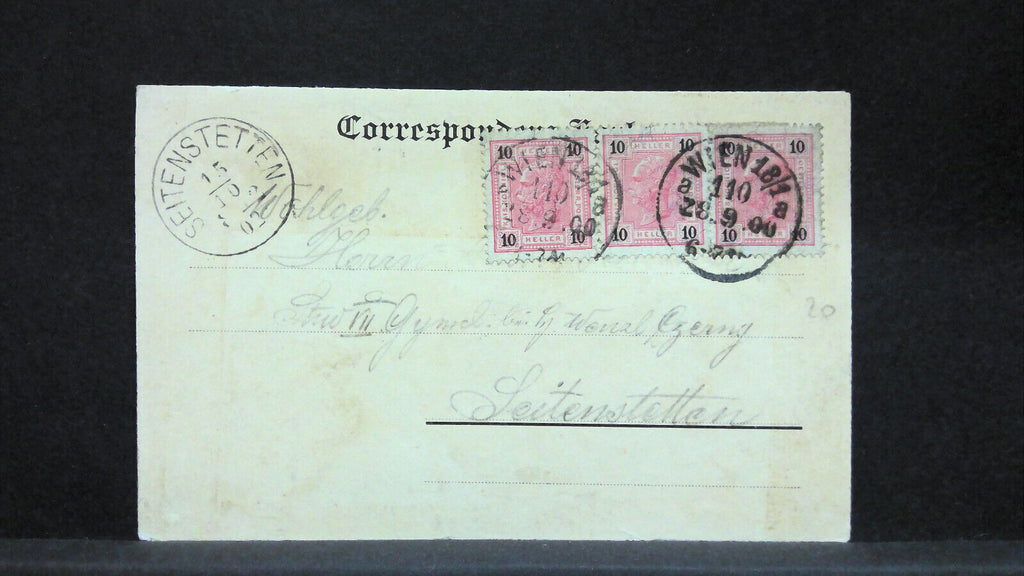 Correspondenz-Karte
SEITENSTETTEN
10 10 10 10 10 10
HELLER HELLER
WIEN 18/1
a 110 a
28.9.00
WIEN 18/1 a
110
28.9.00
6-
10 10 10 10
HELLER HELLER
Wohlgeb.
Herrn
VII Gymcl. bei H Wenzl Czerny
20
Seitenstetten